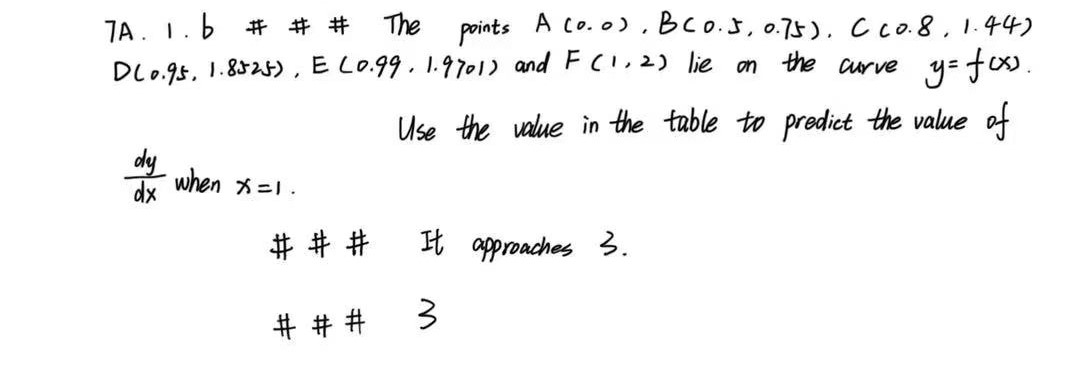 7A. 1. b # # # The points A (0.0), B(0.5, 0.75), C (0.8, 1.44)
D(0.95, 1.8525), E (0.99, 1.9701) and F (1, 2) lie on the curve y=f(x).
Use the value in the table to predict the value of
dy/dx when x=1.
# # # It approaches 3.
# # # 3